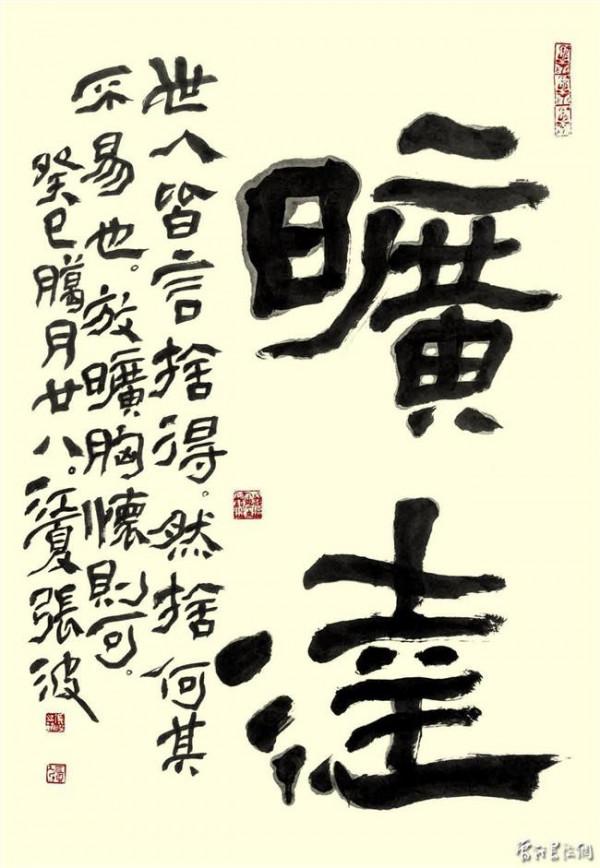 曠達
世人皆言捨得。然捨何其
不易也。放曠胸懷則可。
癸巳臘月廿八。江夏張波